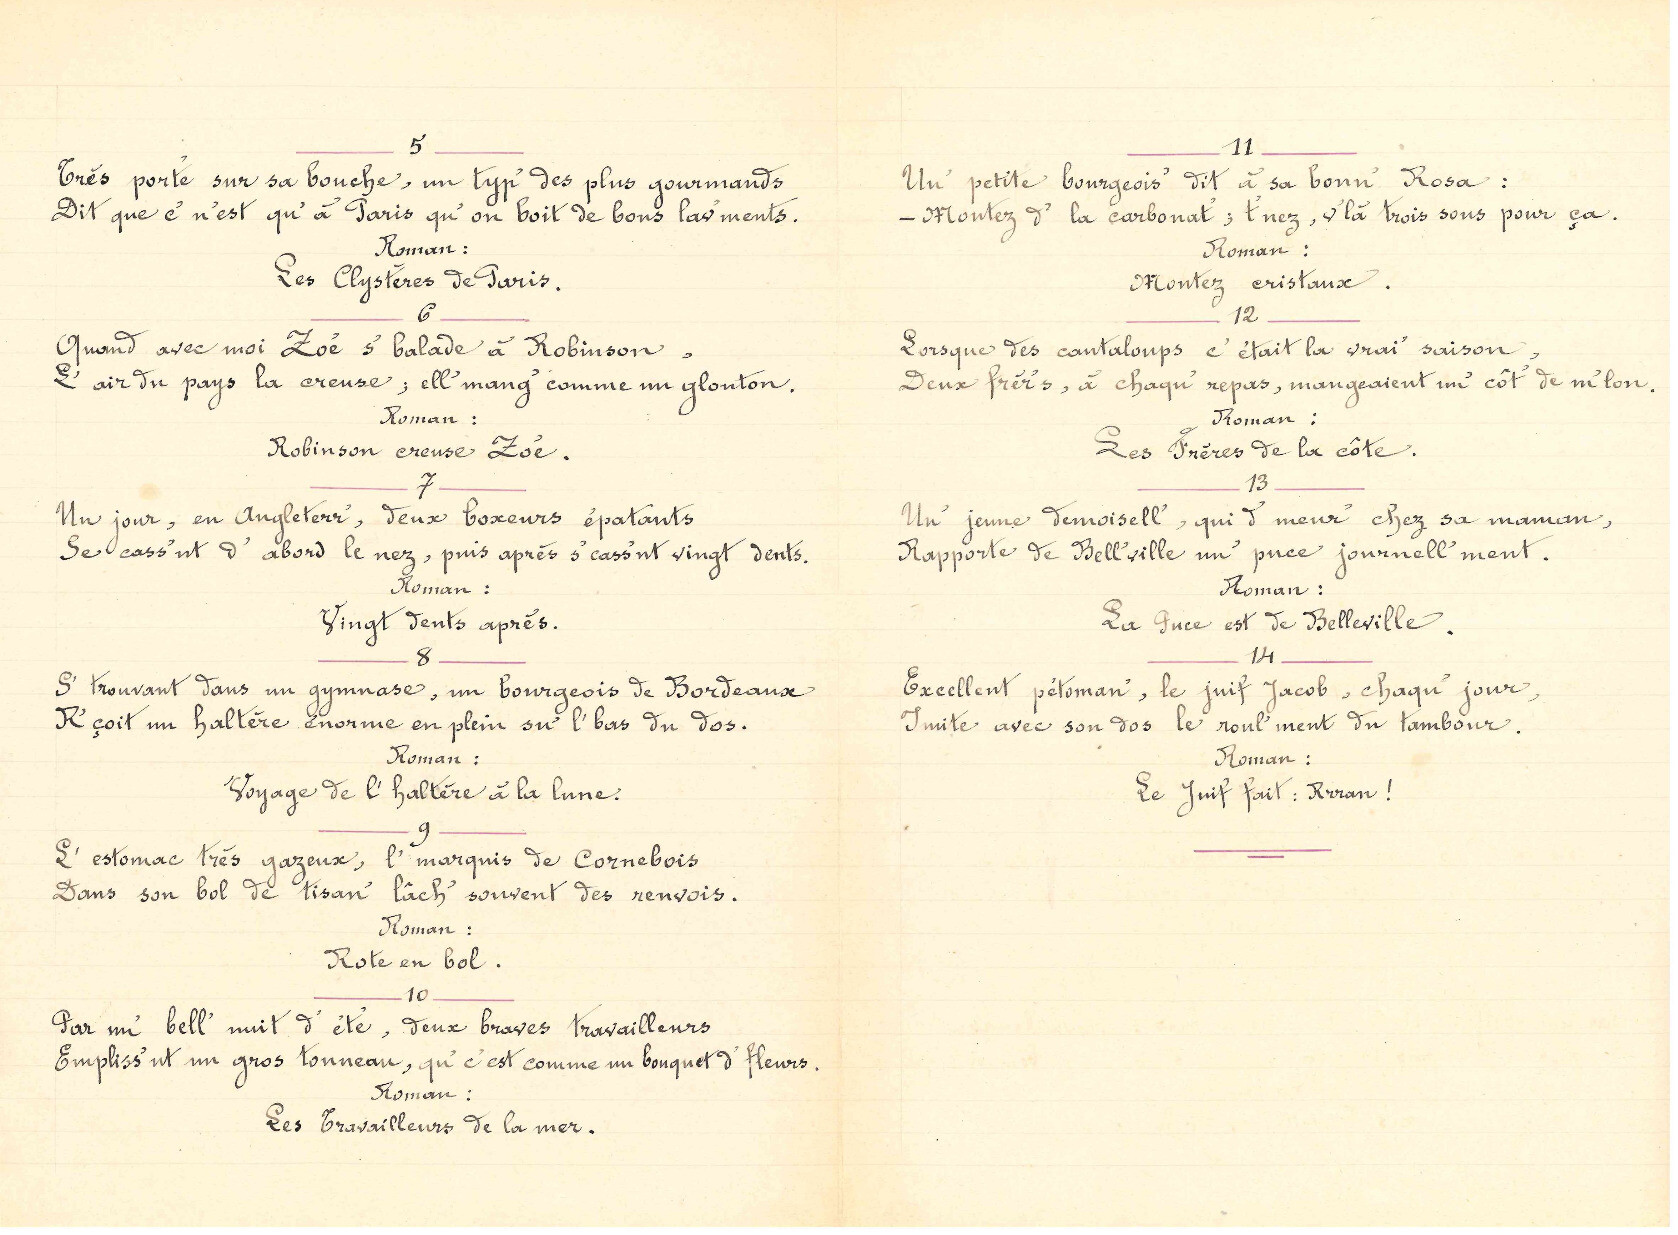 5
Très porté sur sa bouche, un typ' des plus gourmands
Dit que c' n'est qu' à Paris qu' on boit de bons lav'ments.
Roman :
Les Clystères de Paris.
6
Quand avec moi Zoé s' balade à Robinson,
L' air du pays la creuse ; ell' mang' comme un glouton.
Roman :
Robinson creuse Zoé.
7
Un jour, en Angleterr', deux boxeurs épatants
Se cass'nt d' abord le nez, puis après s' cass'nt vingt dents.
Roman :
Vingt dents après.
8
S' trouvant dans un gymnase, un bourgeois de Bordeaux
R' çoit un haltère énorme en plein su' l' bas du dos.
Roman :
Voyage de l' haltère à la lune.
9
L' estomac très gazeux, l' marquis de Cornebois
Dans son bol de tisan' lâch' souvent des renvois.
Roman :
Rote en bol.
10
Par un' bell' nuit d' été, deux braves travailleurs
Empliss'nt un gros tonneau, qu' c'est comme un bouquet d' fleurs.
Roman :
Les Travailleurs de la mer.
11
Un' petite bourgeois' dit à sa bonn' Rosa :
– Montez d' la carbonat' ; t'nez, v'là trois sous pour ça.
Roman :
Montez cristaux.
12
Lorsque des cantaloups c' était la vrai' saison,
Deux frèr's, à chaqu' repas, mangeaient un' côt' de m'lon.
Roman :
Les Frères de la côte.
13
Un' jeune demoisell', qui d'meur' chez sa maman,
Rapporte de Bell'ville un' puce journell'ment.
Roman :
La Puce est de Belleville.
14
Excellent pétoman', le juif Jacob, chaqu' jour,
Imite avec son dos le roul'ment du tambour.
Roman :
Le Juif fait : Rrran !